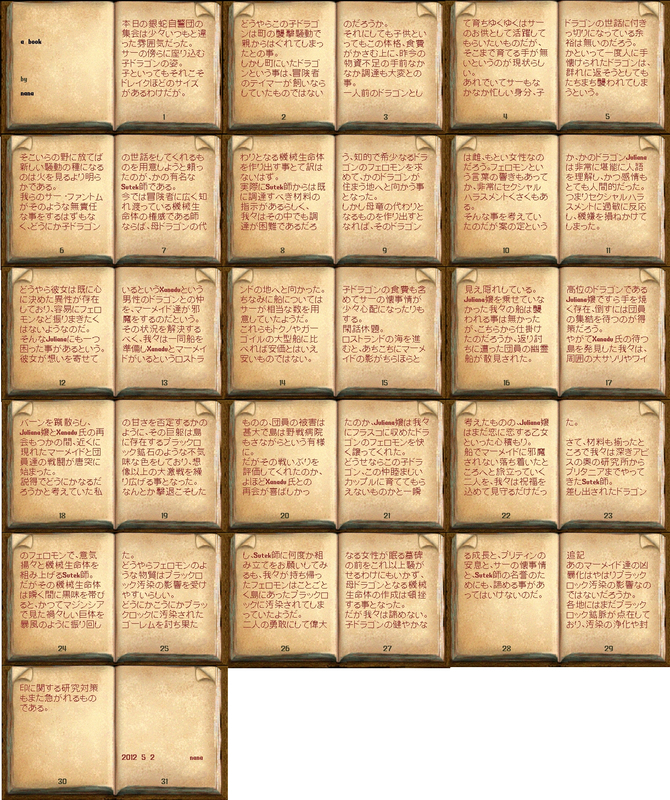 a book
by
nana
本日の銀蛇自警団の
集会は少々いつもと違
った雰囲気だった。
サーの傍らに座り込む
子ドラゴンの姿。
子といってもそれこそ
ドレイクほどのサイズ
があるわけだが。
1
どうやらこの子ドラゴ
ンは町の襲撃騒動で
親からはぐれてしまっ
たとの事。
しかし町にいたドラゴ
ンという事は、冒険者
のテイマーが飼いなら
していたものではない
2
のだろうか。
それにしても子供とい
ってもこの体格、食費
がかさむ上に、昨今の
物資不足の手前なか
なか調達も大変との
事。
一人前のドラゴンとし
3
て育ちゆくゆくはサー
のお供として活躍して
もらいたいものだが、
そこまで育てる手が無
いというのが現状らし
い。
あれでいてサーもな
かなか忙しい身分、子
4
ドラゴンの世話に付き
っ切りになっている余
裕は無いのだろう。
かといって一度人に手
懐けられたドラゴンは、
群れに返そうとしても
たちまち襲われてしま
うという。
5
そこいらの野に放てば
新しい騒動の種になる
のは火を見るより明ら
かである。
我らのサー・ファントム
がそのような無責任
な事をするはずもな
く、どうにか子ドラゴン
6
の世話をしてくれるも
のを用意しようと頼っ
たのが、かの有名な
Sutek師である。
今では冒険者に広く知
れ渡っている機械生
命体の権威である師
ならば、母ドラゴンの代
7
わりとなる機械生命体
を作り出す事とて訳は
ないはず。
実際にSutek師からは既
に調達すべき材料の
指示があるらしく、
我々はその中でも調
達が困難であるだろ
8
う、知的で希少なるドラ
ゴンのフェロモンを求
めて、かのドラゴンが
住まう地へと向かう事
となった。
しかし母竜の代わりと
なるものを作り出すと
なれば、そのドラゴン
9
は雌、もとい女性なの
だろう。フェロモンとい
う言葉の響きもあって
か、非常にセクシャル
ハラスメントくさくもあ
る。
そんな事を考えてい
たのだが案の定という
10
か、かのドラゴンJuliana
は非常に堪能に人語
を理解し、かつ感情も
とても人間的だった。
つまりセクシャルハラ
スメントに過敏に反応
し、機嫌を損ねかけて
しまった。
11
どうやら彼女は既に心
に決めた異性が存在
しており、容易にフェロ
モンなど振りまきたく
はないようなのだ。
そんなJulianaにも一つ
困った事があるという。
彼女が想いを寄せて
12
いるというXanaduという
男性のドラゴンとの仲
を、マーメイド達が邪
魔をするのだという。
その状況を解決する
べく、我々は一同船を
準備し、Xanaduとマーメイ
ドがいるというロストラ
13
ンドの地へと向かった。
ちなみに船については
サーが相当な数を用
意していたようだ。
これらもトクノやガー
ゴイルの大型船に比
べれば安価とはいえ
安いものではない。
14
子ドラゴンの食費も含
めてサーの懐事情が
少々心配になったりも
する。
閑話休題。
ロストランドの海を進
むと、あちこちにマーメ
イドの影がちらほらと
15
見え隠れしている。
Juliana嬢を乗せていな
かった我々の船は襲
われる事は無かった
が、こちらから仕掛け
たのだろうか、返り討
ちに遭った団員の幽霊
船が散見された。
16
高位のドラゴンである
Juliana嬢ですら手を焼
く存在、倒すには団員
の集結を待つのが得
策だろう。
やがてXanadu氏の待つ
島を発見した我々は、
周囲の大サソリやワイ
17
バーンを蹴散らし、
Juliana嬢とXanadu氏の再
会もつかの間、近くに
現れたマーメイドと団
員達の戦闘が唐突に
始まった。
説得でどうにかなるだ
ろうかと考えていた私
18
の甘さを否定するかの
ように、その巨躯は島
に存在するブラックロ
ック鉱石のような不気
味な色をしており、想
像以上の大激戦を繰
り広げる事となった。
なんとか撃退こそした
19
ものの、団員の被害は
甚大で島は野戦病院
もさながらという有様
に。
だがその戦いぶりを
評価してくれたのか、
よほどXanadu氏との
再会が喜ばしかっ
20
たのか、Juliana嬢は我々
にフラスコに収めたドラ
ゴンのフェロモンを快
く譲ってくれた。
どうせならこの子ドラ
ゴン、この仲睦まじい
カップルに育ててもら
えないものかと一瞬
21
考えたものの、Juliana嬢
はまだ恋に恋する乙女
といった心積もり。
船でマーメイドに邪魔
されない落ち着いたと
ころへと旅立っていく
二人を、我々は祝福を
込めて見守るだけだっ
22
た。
さて、材料も揃ったと
ころで我々は深きアビ
スの奥の研究所から
ブリテニアまでやって
きたSutek師。
差し出されたドラゴン
23
のフェロモンで、意気
揚々と機械生命体を
組み上げるSutek師。
だがその機械生命体
は瞬く間に黒味を帯び
ると、かつてマジンシア
で見た禍々しい巨体を
暴風のように振り回し
24
た。
どうやらフェロモンのよ
うな物質はブラックロ
ック汚染の影響を受け
やすいらしい。
どうにかこうにかブラッ
クロックに汚染された
ゴーレムを討ち果た
25
し、Sutek師に何度か組
み立てをお願いしてみ
るも、我々が持ち帰っ
たフェロモンはことごと
く島にあったブラックロ
ックに汚染されてしま
っていたようだ。
二人の勇敢にして偉大
26
なる女性が眠る墓碑
の前をこれ以上騒が
せるわけにもいかず、
母ドラゴンとなる機械
生命体の作成は頓挫
する事となった。
だが我々は諦めない。
子ドラゴンの健やかな
27
る成長と、ブリティンの
安息と、サーの懐事情
と、Sutek師の名誉のた
めにも、諦める事があ
ってはいけないのだ。
28
追記
あのマーメイド達の凶
暴化はやはりブラック
ロックの影響なので
はないだろうか。
各地にはまだブラック
ロック鉱脈が点在して
おり、汚染の浄化や封
29
印に関する研究対策
もまた急がれるもの
である。
30
2012 5 2 nana
31